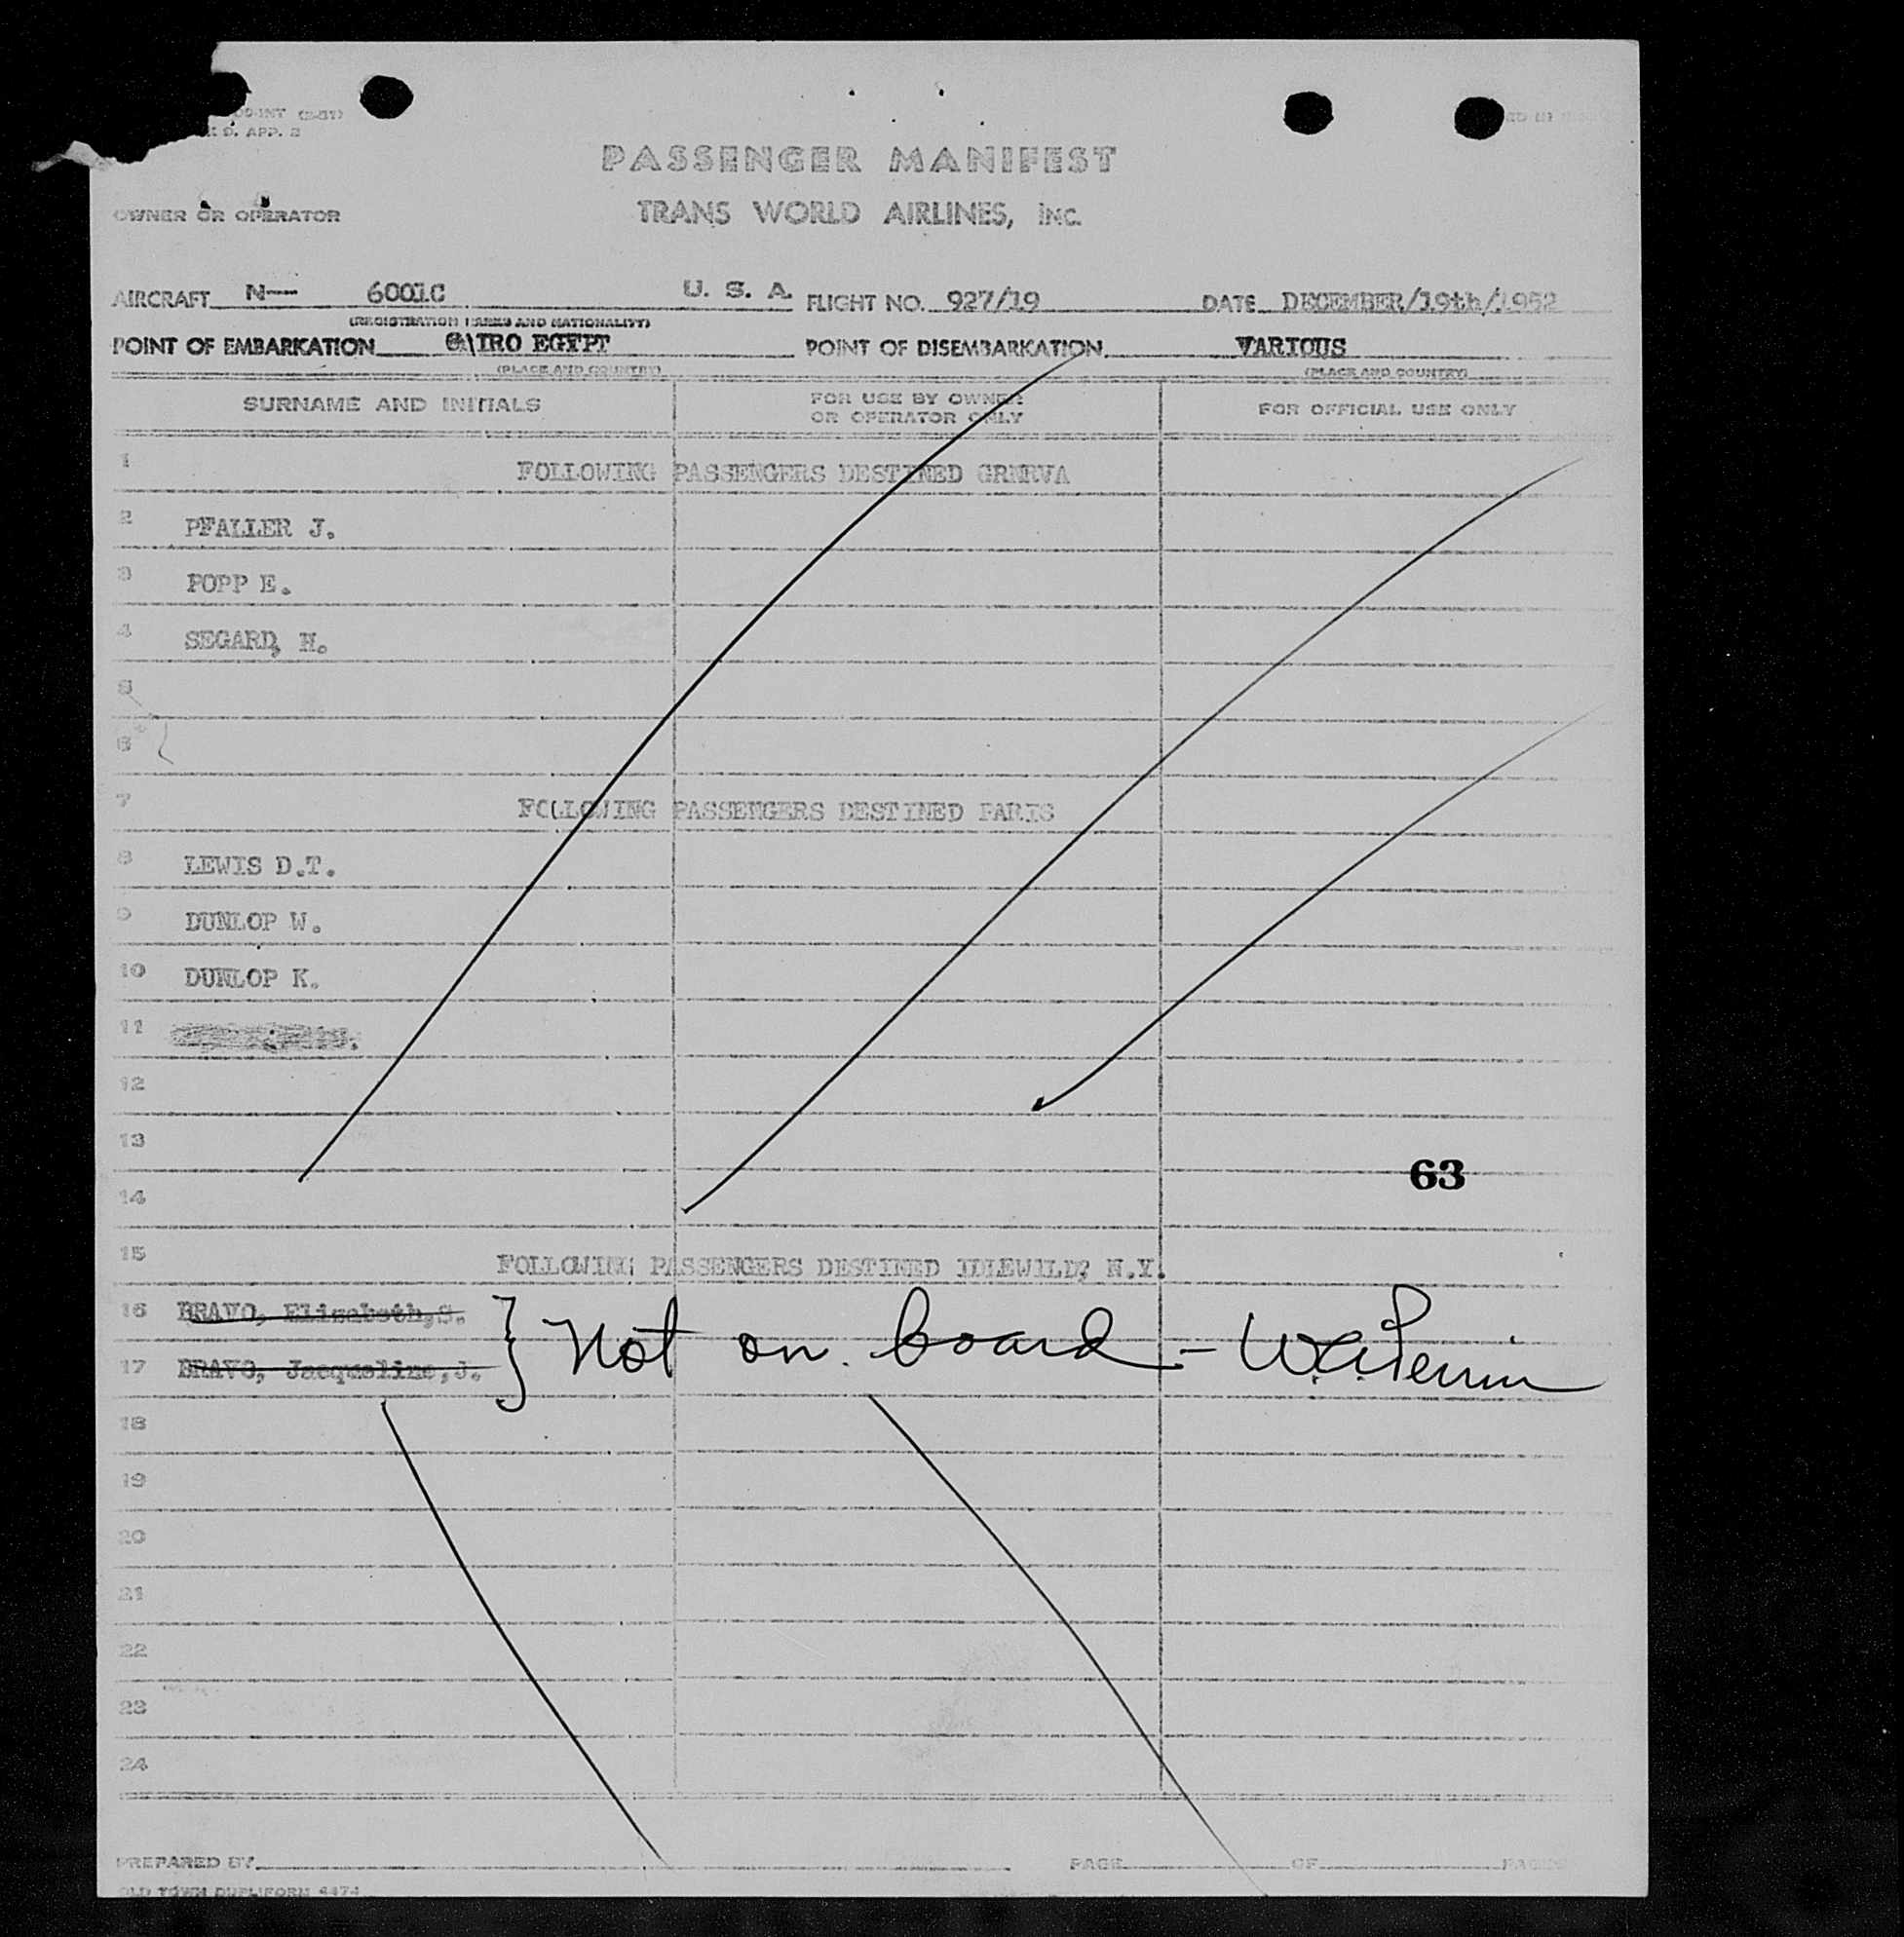 D. APP. 2
PASSENGER MANIFEST
OWNER OR OPERATOR TRANS WORLD AIRLINES, INC.
AIRCRAFT N— 6001C U. S. A. FLIGHT NO. 927/19 DATE DECEMBER/19th/1952
(REGISTRATION MARKS AND NATIONALITY)
POINT OF EMBARKATION CAIRO EGYPT POINT OF DISEMBARKATION VARIOUS
(PLACE AND COUNTRY) (PLACE AND COUNTRY)
SURNAME AND INITIALS FOR USE BY OWNER OR OPERATOR ONLY FOR OFFICIAL USE ONLY
1 FOLLOWING PASSENGERS DESTINED GENEVA
2 PFALLER J.
3 POPP E.
4 SEGARD, H.
5
6
7 FOLLOWING PASSENGERS DESTINED PARIS
8 LEWIS D.T.
9 DUNLOP W.
10 DUNLOP K.
11
12
13
63
14
15 FOLLOWING PASSENGERS DESTINED IDLEWILD, N.Y.
16 BRAVO, Elizabeth,S.
} Not on board - W.A. Perrin
17 BRAVO, Jacqueline,J.
18
19
20
21
22
23
24
PREPARED BY PAGE OF PAGES
OLD TOWN DUPLIFORM 4474